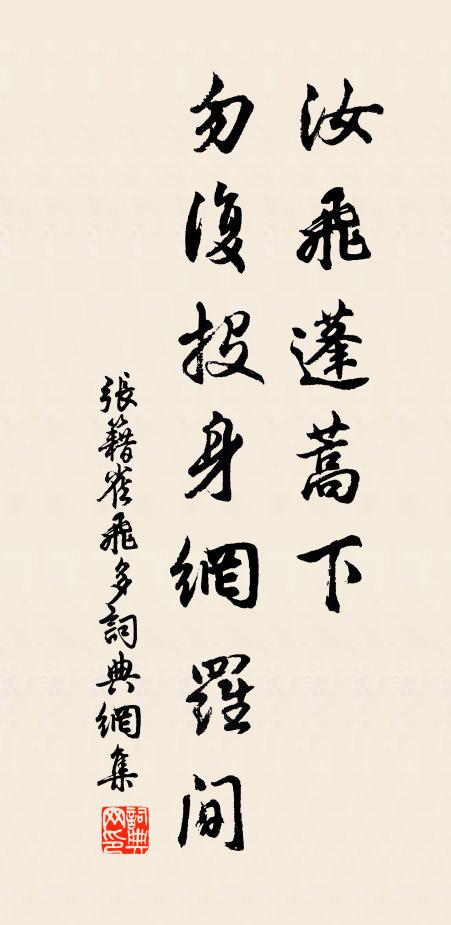 汝飛蓬蒿下
勿復投身網羅間
張籍雀飛多詞典網集
詞典網印